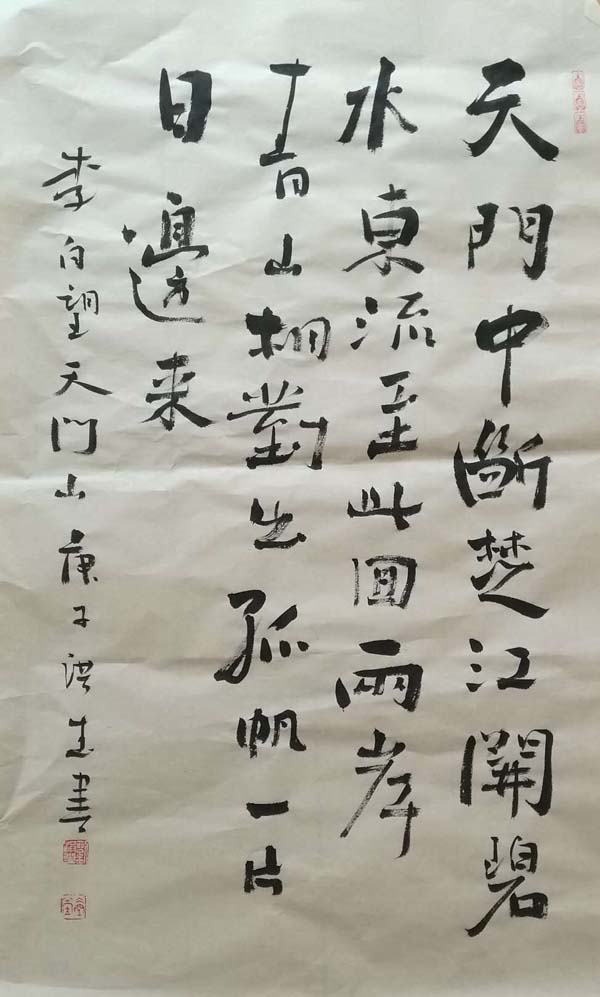 天門中斷楚江開碧
水東流至此回兩岸
青山相對出孤帆一片
日邊来
李白望天門山庚子洪生書